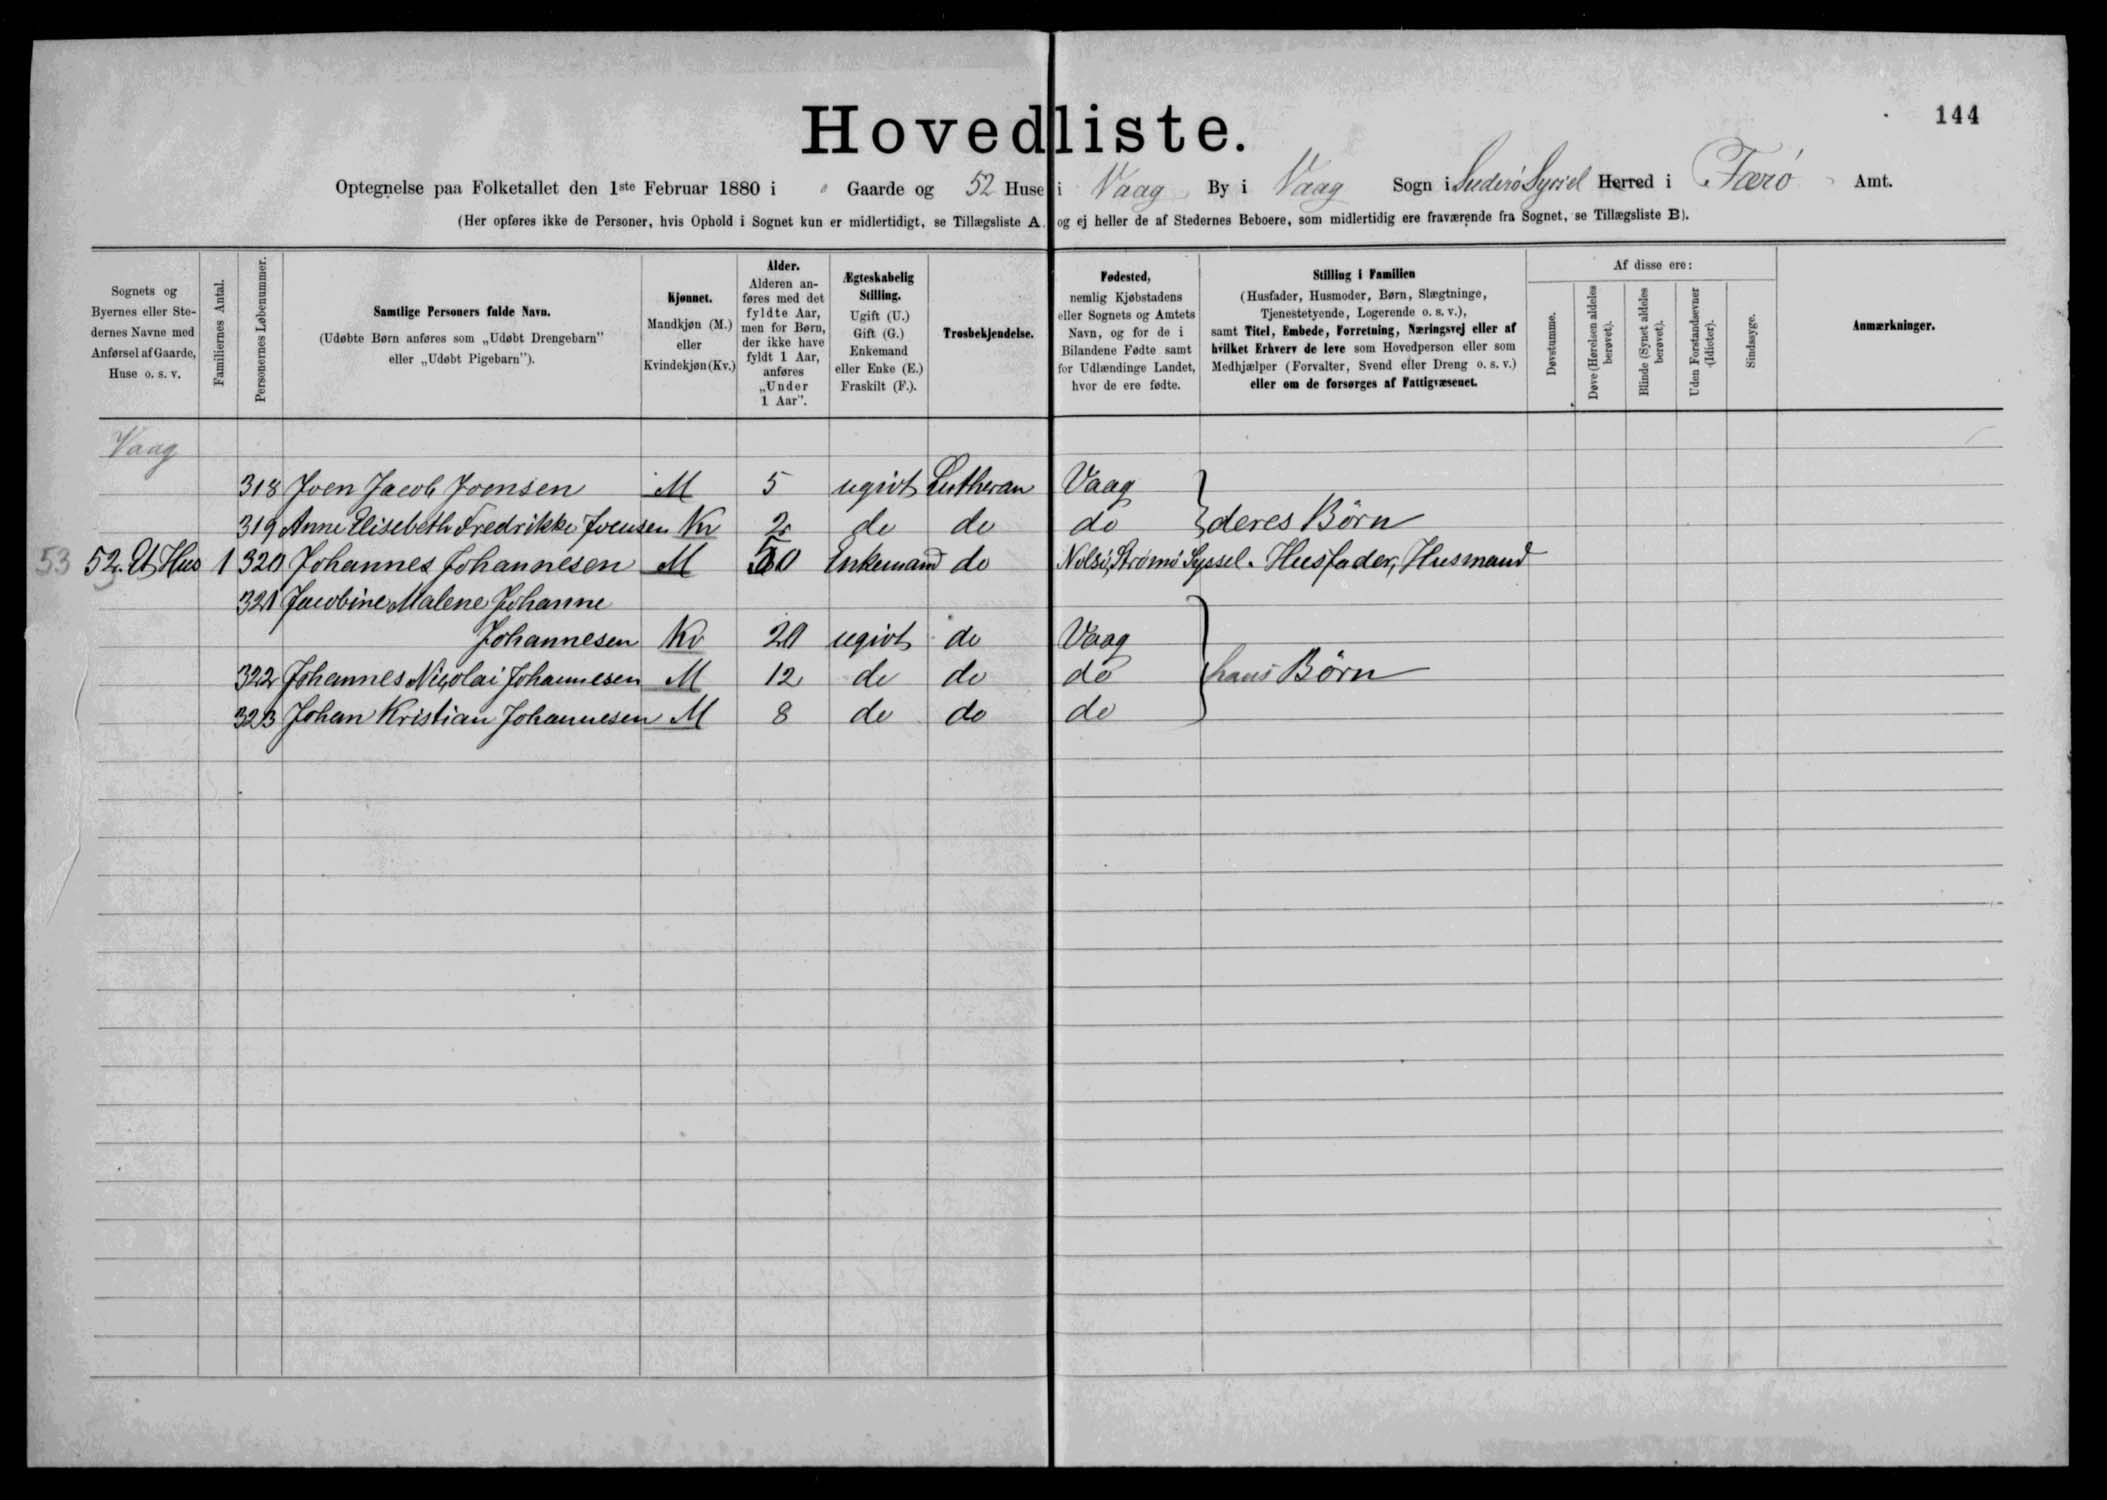 144
Hovedliste.
Optegnelse paa Folketallet den 1ste Februar 1880 i Gaarde og 52 Huse i Vaag By i Vaag Sogn i Suderø Syssel Herred i Færø Amt.
(Her opføres ikke de Personer, hvis Ophold i Sognet kun er midlertidigt, se Tillægsliste A og ej heller de af Stedernes Beboere, som midlertidig ere fraværende fra Sognet, se Tillægsliste B).
Sognets og
Byernes eller Ste-
dernes Navne med
Anførsel af Gaarde,
Huse o. s. v.
Familiernes Antal.
Personernes Løbenummer.
Samtlige Personers fulde Navn.
(Udøbte Børn anføres som „Udøbt Drengebarn"
eller „Udøbt Pigebarn").
Kjønnet.
Mandkjøn (M.)
eller
Kvindekjøn (Kv.)
Alder.
Alderen an-
føres med det
fyldte Aar,
men for Børn,
der ikke have
fyldt 1 Aar,
anføres
„Under
1 Aar".
Ægteskabelig
Stilling.
Ugift (U.)
Gift (G.)
Enkemand
eller Enke (E.)
Fraskilt (F.).
Trosbekjendelse.
Fødested,
nemlig Kjøbstadens
eller Sognets og Amtets
Navn, og for de i
Bilandene Fødte samt
for Udlændinge Landet,
hvor de ere fødte.
Stilling i Familien
(Husfader, Husmoder, Børn, Slægtninge,
Tjenestetyende, Logerende o. s. v.),
samt Titel, Embede, Forretning, Næringsvej eller af
hvilket Erhverv de leve som Hovedperson eller som
Medhjælper (Forvalter, Svend eller Dreng o. s. v.)
eller om de forsørges af Fattigvæsenet.
Af disse ere:
Døvstumme.
Døve (Hørelsen aldeles
berøvet).
Blinde (Synet aldeles
berøvet).
Uden Forstandsevner
(Idioter).
Sindssyge.
Anmærkninger.
Vaag
318 Joen Jacob Joensen M 5 ugivt Lutheran Vaag
319 Anne Elisebeth Fredrikke Joensen Kv 2 do do do deres Børn
53 52. Et Hus 1 320 Johannes Johannesen M 50 Enkemand do Nolsø, Strømø Syssel. Husfader, Husmand
321 Jacobine Malene Johanne
Johannesen Kv 20 ugivt do Vaag
322 Johannes Nicolai Johannesen M 12 do do do hans Børn
323 Johan Kristian Johannesen M 8 do do do